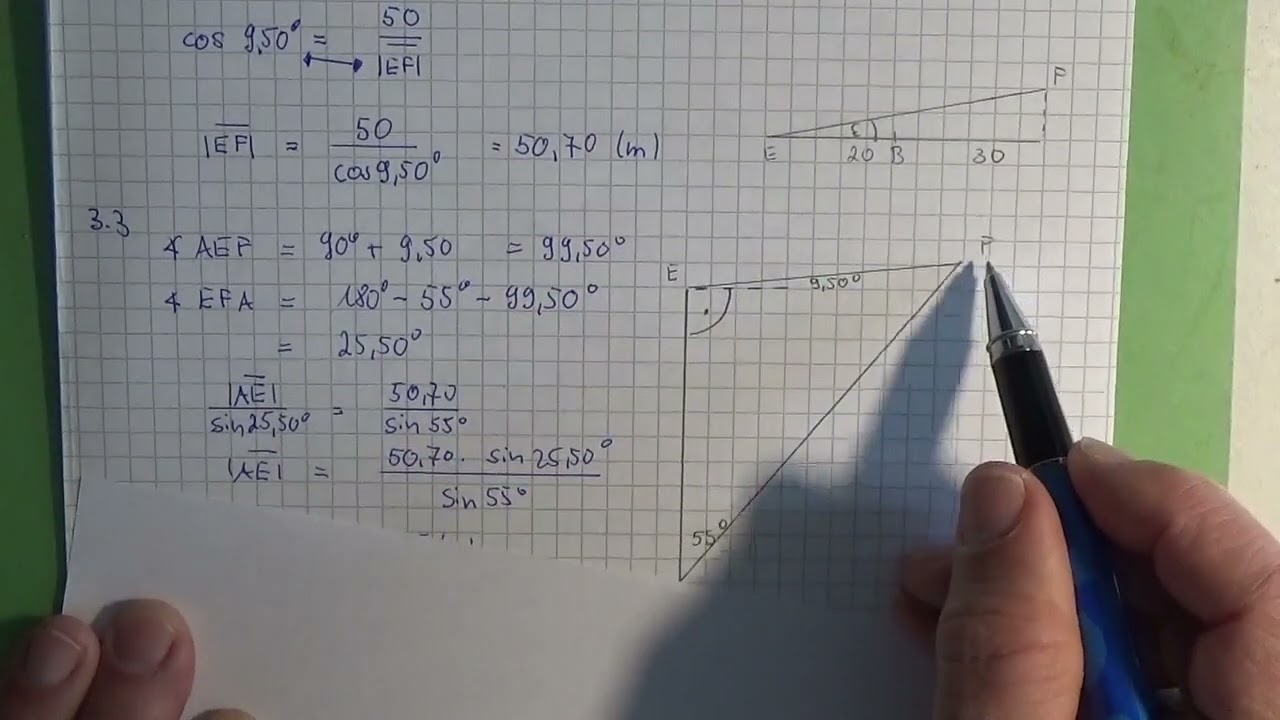 cos 9,50° = 50 / |EF|
|EF| = 50 / cos 9,50° = 50,70 (m)
F
E 20 B 30
3.3
∢ AEF = 90° + 9,50 = 99,50°
∢ EFA = 180° - 55° - 99,50°
= 25,50°
|AE| / sin 25,50° = 50,70 / sin 55°
|AE| = 50,70 · sin 25,50° / sin 55°
E F
9,50°
55°